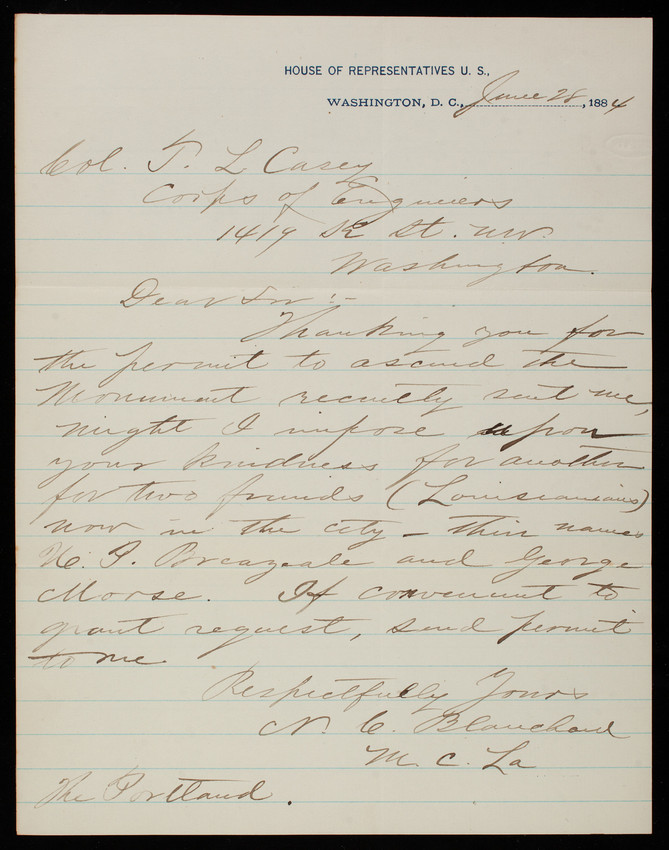 HOUSE OF REPRESENTATIVES U. S.,
WASHINGTON, D. C., June 28, 1884
Col. T. L Casey
Corps of Engineers
1419 K St. NW.
Washington.
Dear Sir :-
Thanking you for
the permit to ascend the
Monument recently sent me,
might I impose upon
your kindness for another
for two friends (Louisianians)
now in the city - their names
P. Breazeale and George
Morse. If convenient to
grant request, send permit
to me
Respectfully Yours
N. C. Blanchard
M. C. La
The Portland.